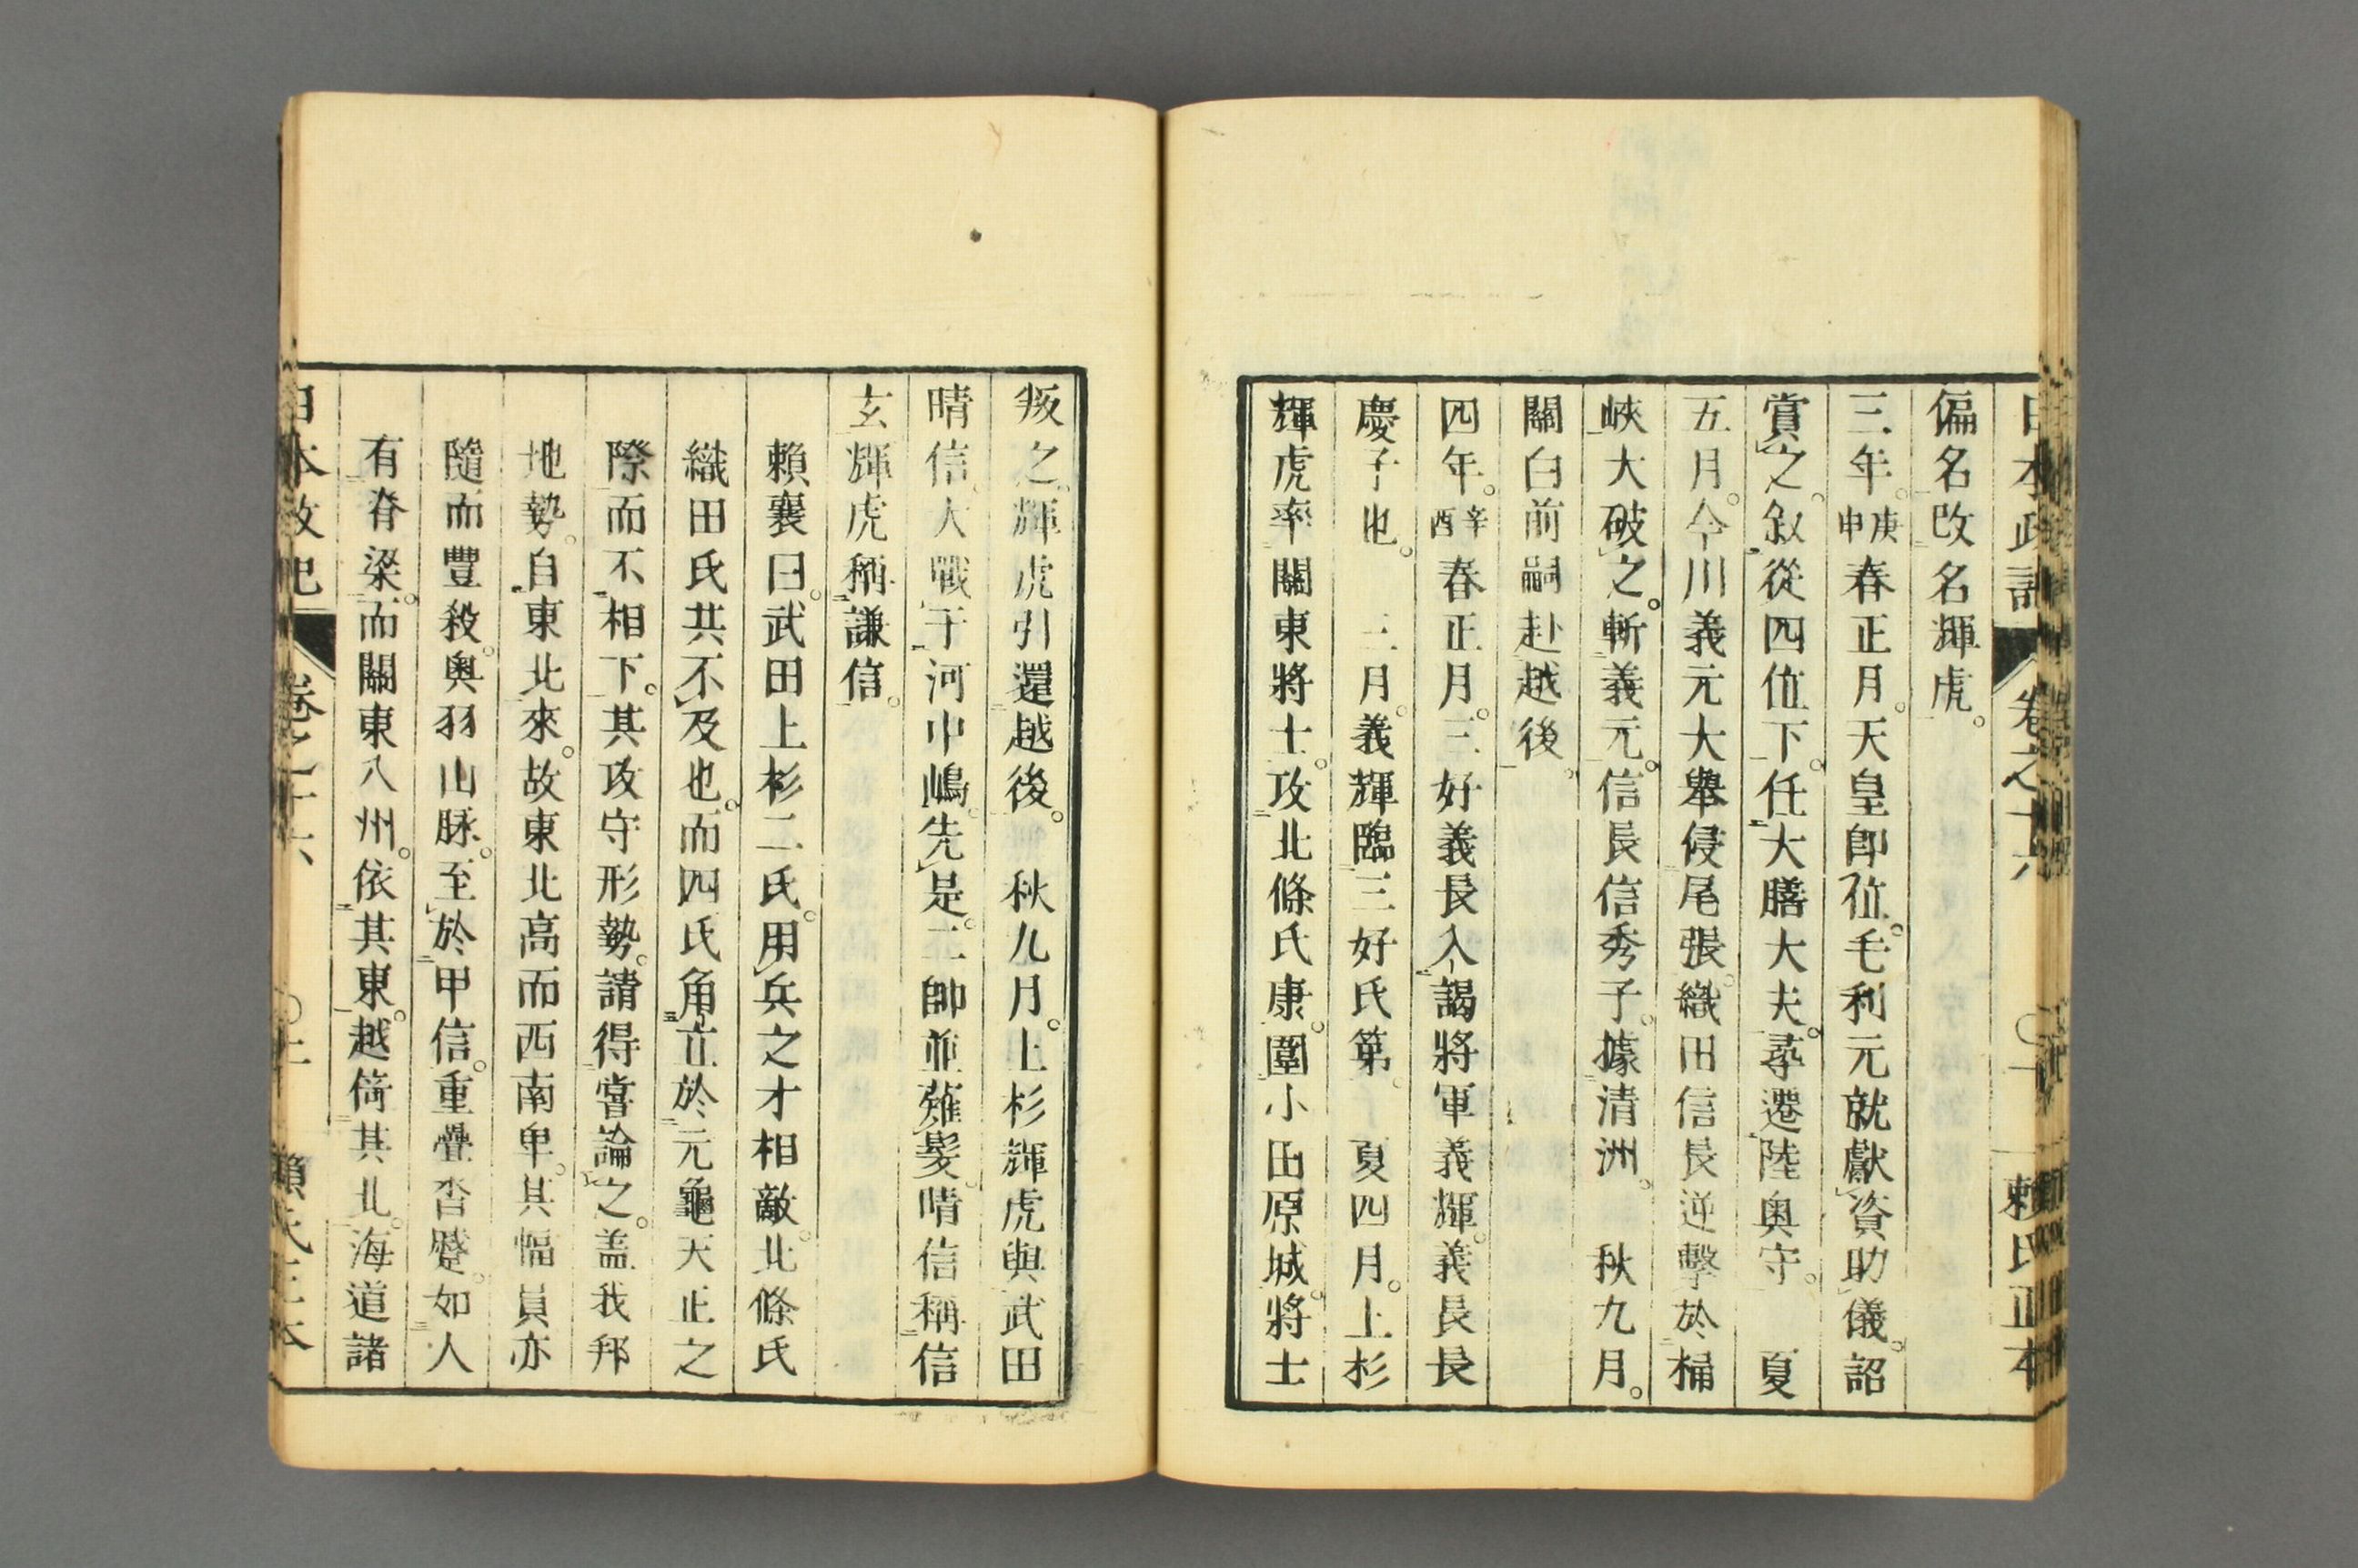 日本政記 卷之十六 〇十 賴氏正本
偏名改名輝虎。
三年。庚申春正月。天皇卽位。毛利元就獻資助儀。詔
賞之。敍從四位下。任大膳大夫。尋遷陸奧守。 夏
五月。今川義元大擧侵尾張。織田信長逆擊於桶
峽大破之。斬義元。信長信秀子。據清洲。 秋九月。
關白前嗣赴越後。
四年。辛酉春正月。三好義長入謁將軍義輝。義長長
慶子也。 三月。義輝臨三好氏第。 夏四月。上杉
輝虎率關東將士。攻北條氏康。圍小田原城。將士
叛之。輝虎引還越後。 秋九月。上杉輝虎與武田
晴信。大戰于河中嶋。先是。二帥並薙髮。晴信稱信
玄輝虎稱謙信。
賴襄曰。武田上杉二氏。用兵之才相敵。北條氏
織田氏共不及也。而四氏角立於元龜天正之
際而不相下。其攻守形勢。請得嘗論之。盖我邦
地勢。自東北來。故東北高而西南卑。其幅員亦
隨而豐殺。奧羽山脉。至於甲信。重疊沓蹙。如人
有脊梁。而關東八州。依其東。越倚其北。海道諸
日本政記 卷之十六 〇十 賴氏正本